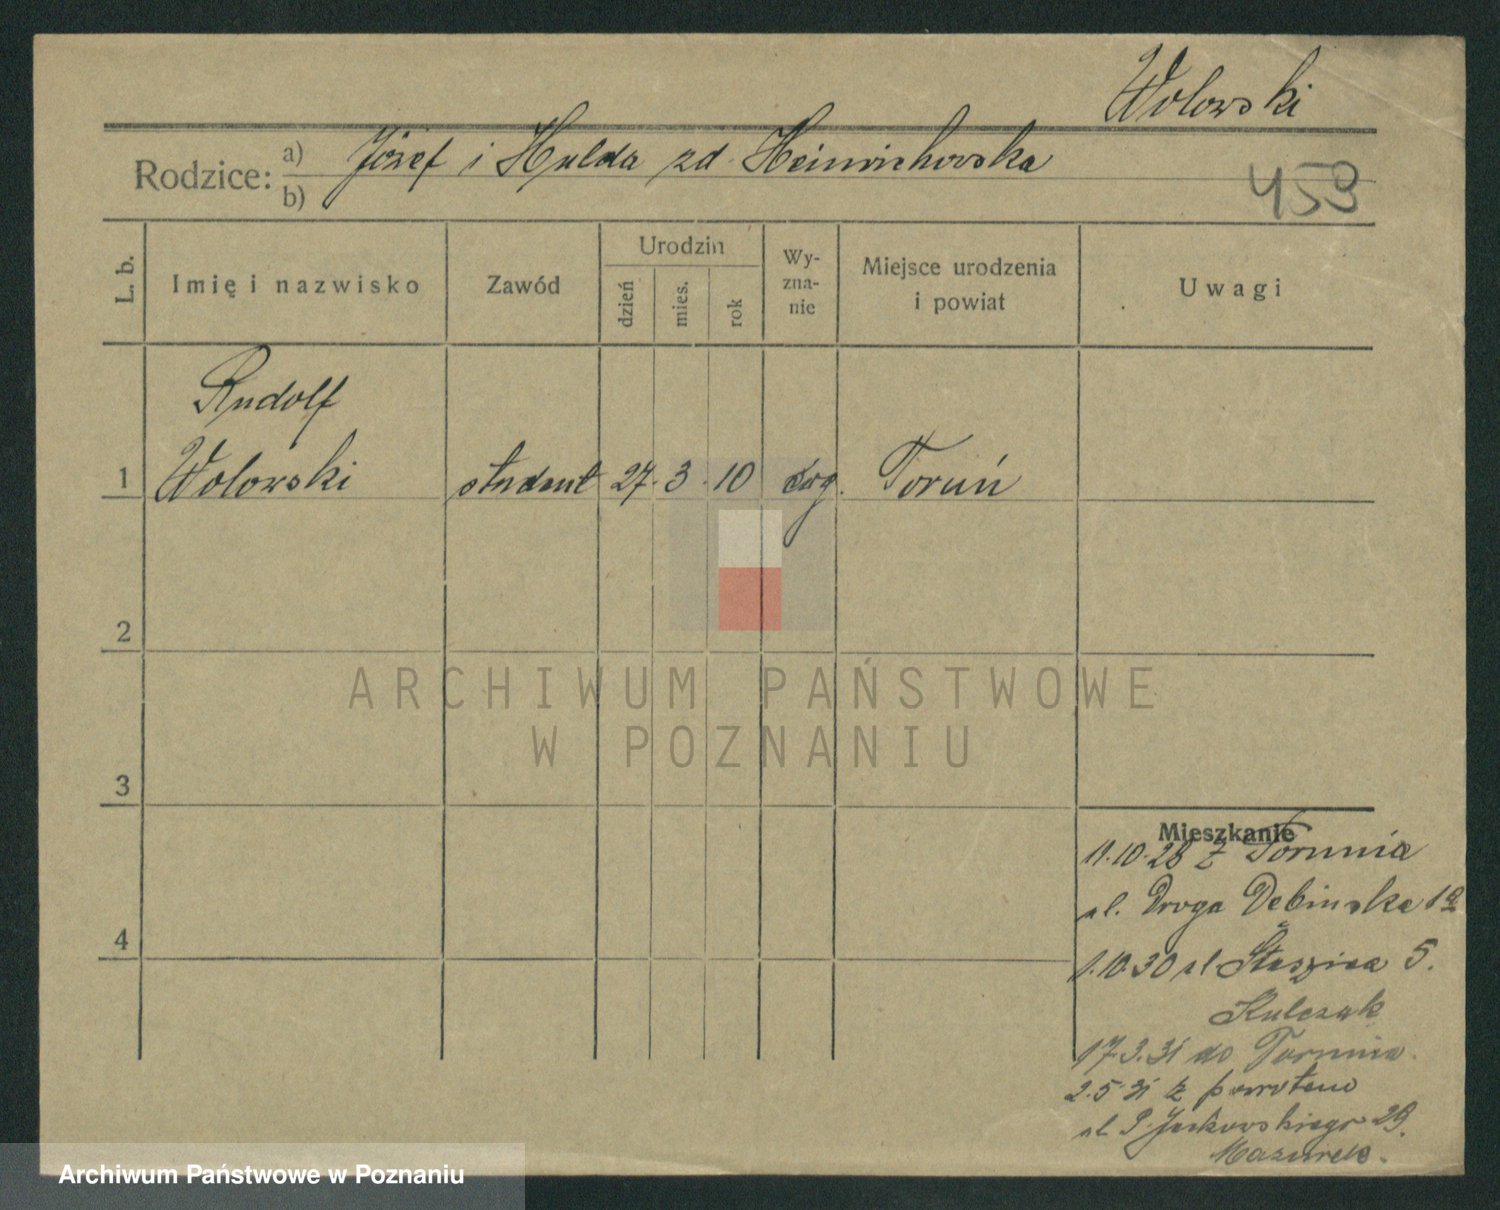 Wolowski
Rodzice: a) Józef i Hulda zd. Heinrichowska
b)
459
L. b.
Imię i nazwisko
Zawód
Urodzin
dzień
mies.
rok
Wy-
zna-
nie
Miejsce urodzenia
i powiat
Uwagi
Rudolf
1 Wolowski student 27. 3. 10 Toruń
2
ARCHIWUM PAŃSTWOWE
W POZNANIU
3
Mieszkanie
11.10.28 z Torunia
ul. Droga Dębinska 1a
4
1.10.30 ul Staszica 5.
Kulczak
17.3.31 do Torunia.
2.5.31 z powrotem
ul. J. Jackowskiego 29.
Mazurek.
Archiwum Państwowe w Poznaniu